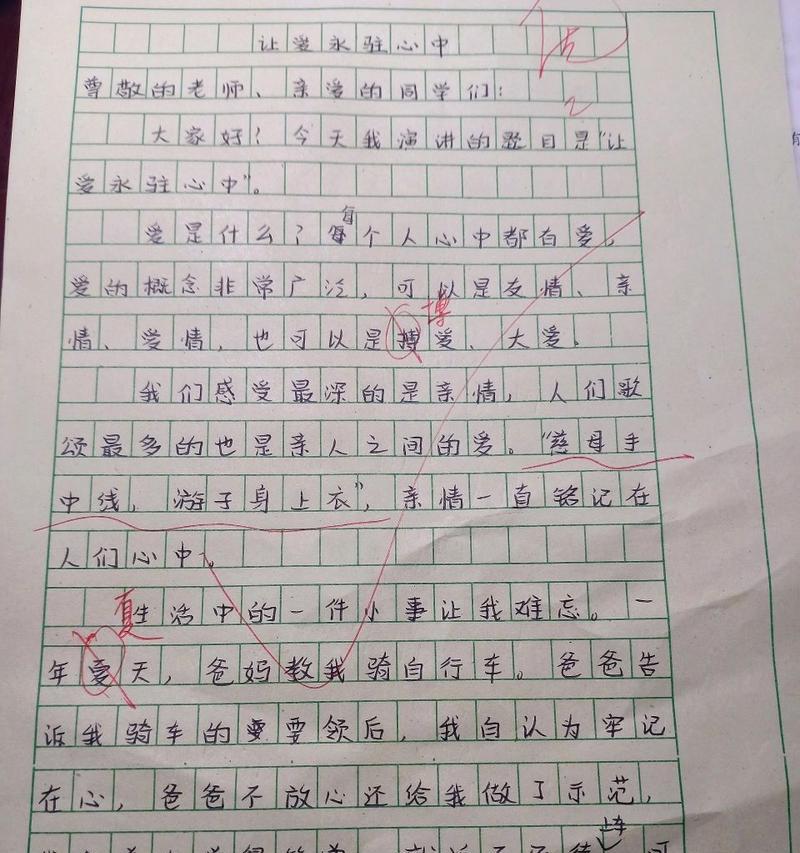 让爱永驻心中
尊敬的老师、亲爱的同学们:
大家好!今天我演讲的题目是“让
爱永驻心中”。
爱是什么?每个人心中都有爲,
爱的概念非常广泛,可以是友情、亲
情、爱情,也可以是搏爱、大爱。
博
我们感受最深的是亲情,人们歌
颂最多的也是亲人之间的爱。“慈母手
中线,游子身上衣”,亲情一直铭记在
人们心中。
生活中的一件小事让我难忘。一
夏
年天,爸妈教我骑自行车。爸爸告
诉我骑车的要领后,我自认为牢记
在心,爸爸不放心还给我做了示范,
上车